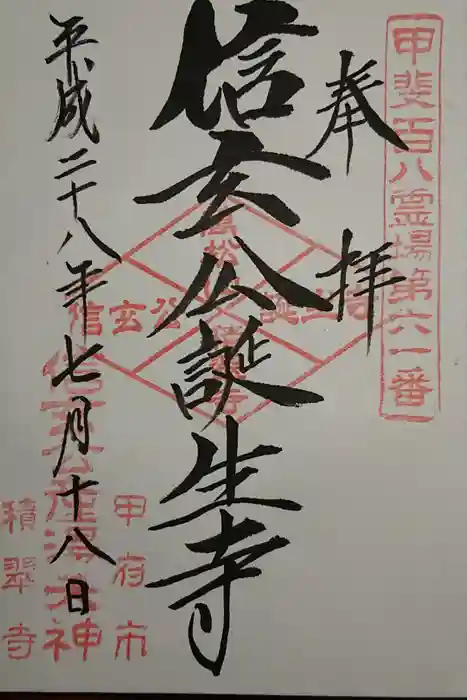 甲斐百八霊場第六一番
奉拝
信玄公誕生寺
信玄公誕生寺
平成二十八年七月十八日
甲府市
信玄公産湯天神
積翠寺